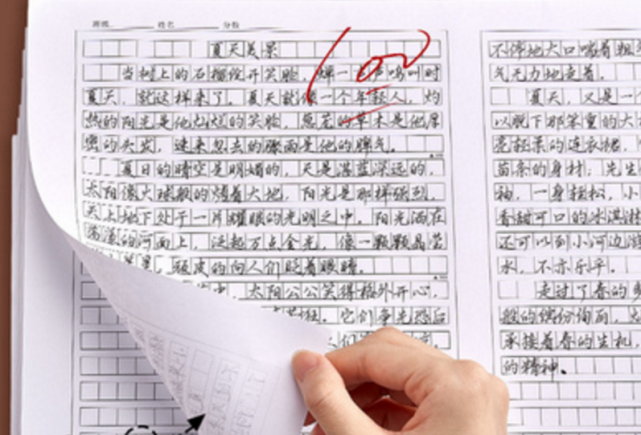 班级 姓名 分数
100
夏天美景
当树上的石榴绽开笑脸，蝉一声声鸣叫时
夏天，就这样来了。夏天就像一个年轻人，灼
热的阳光是他灿烂的笑脸，葱茏的草木是他厚
密的头发，速来忽去的骤雨是他的脾气。
夏日的晴空是明媚的，天是湛蓝深远的，
太阳像火球般的烤着大地，阳光是那样强烈，
天上地下处于一片耀眼的光明之中，阳光洒在
的河面上，泛起万点金光，像一颗颗晶莹
皮的向人们眨着眼睛。
太阳公公笑得格外开心，
它们争先恐后
不停地大口喘着粗
气无力地走着。
夏天，又是一个
以脱下那笨重的大
亮轻柔的连衣裙，
苗条的身材，先生
袖，一身轻松，小
香甜可口的冰淇淋
还可以到小河边
水，不亦乐乎。
走过了春的
般的缤纷绚丽，
承接着春的生机，
的精神。